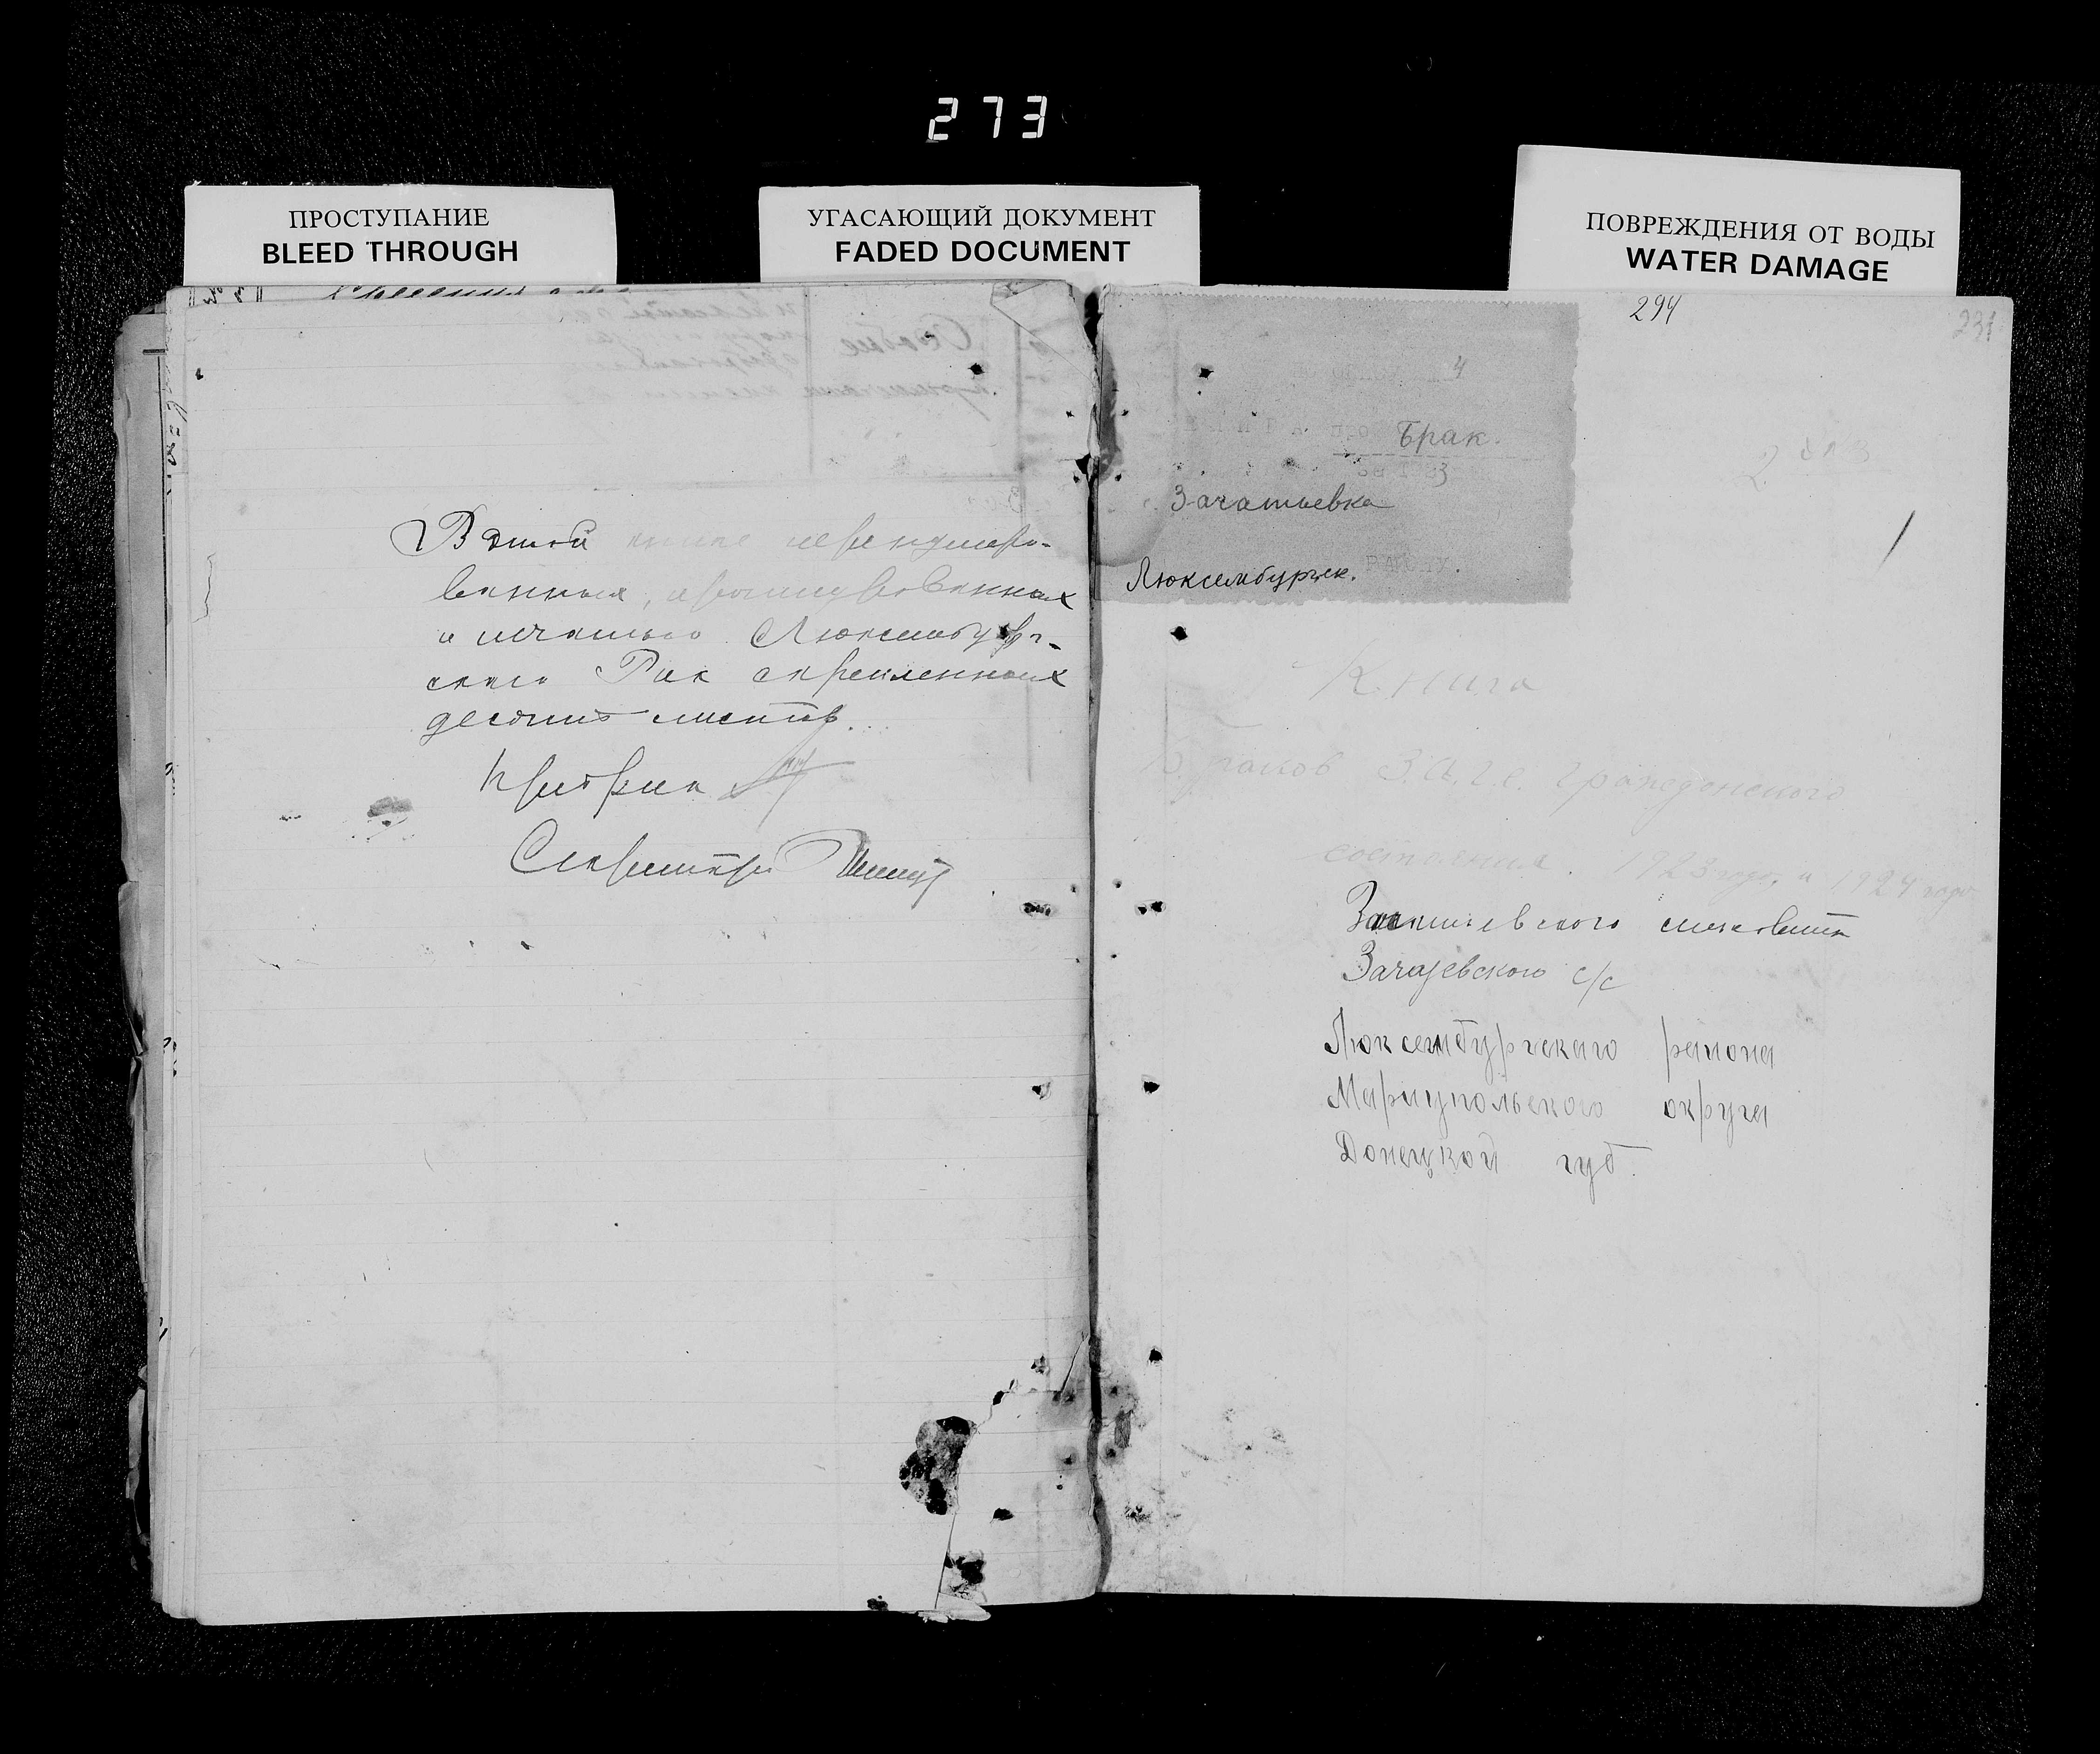 273
ПРОСТУПАНИЕ
BLEED THROUGH
УГАСАЮЩИЙ ДОКУМЕНТ
FADED DOCUMENT
ПОВРЕЖДЕНИЯ ОТ ВОДЫ
WATER DAMAGE
В этой книге пронумеро-
ванных, прошнурованных
и печатью Люксембург-
ского Рик скрепленных
десять листов.
Предрик
Секретарь
294
231
4
про Брак.
Зачатьевка
Люксембургск. РАЙОНУ.
Книга
Браков З.А.Г.С. гражданского
состояния. 1923 года и 1924 года
сельсовета
Зачатевского с/с
Люксембургскаго района
Мариупольского округа
Донецкой губ.